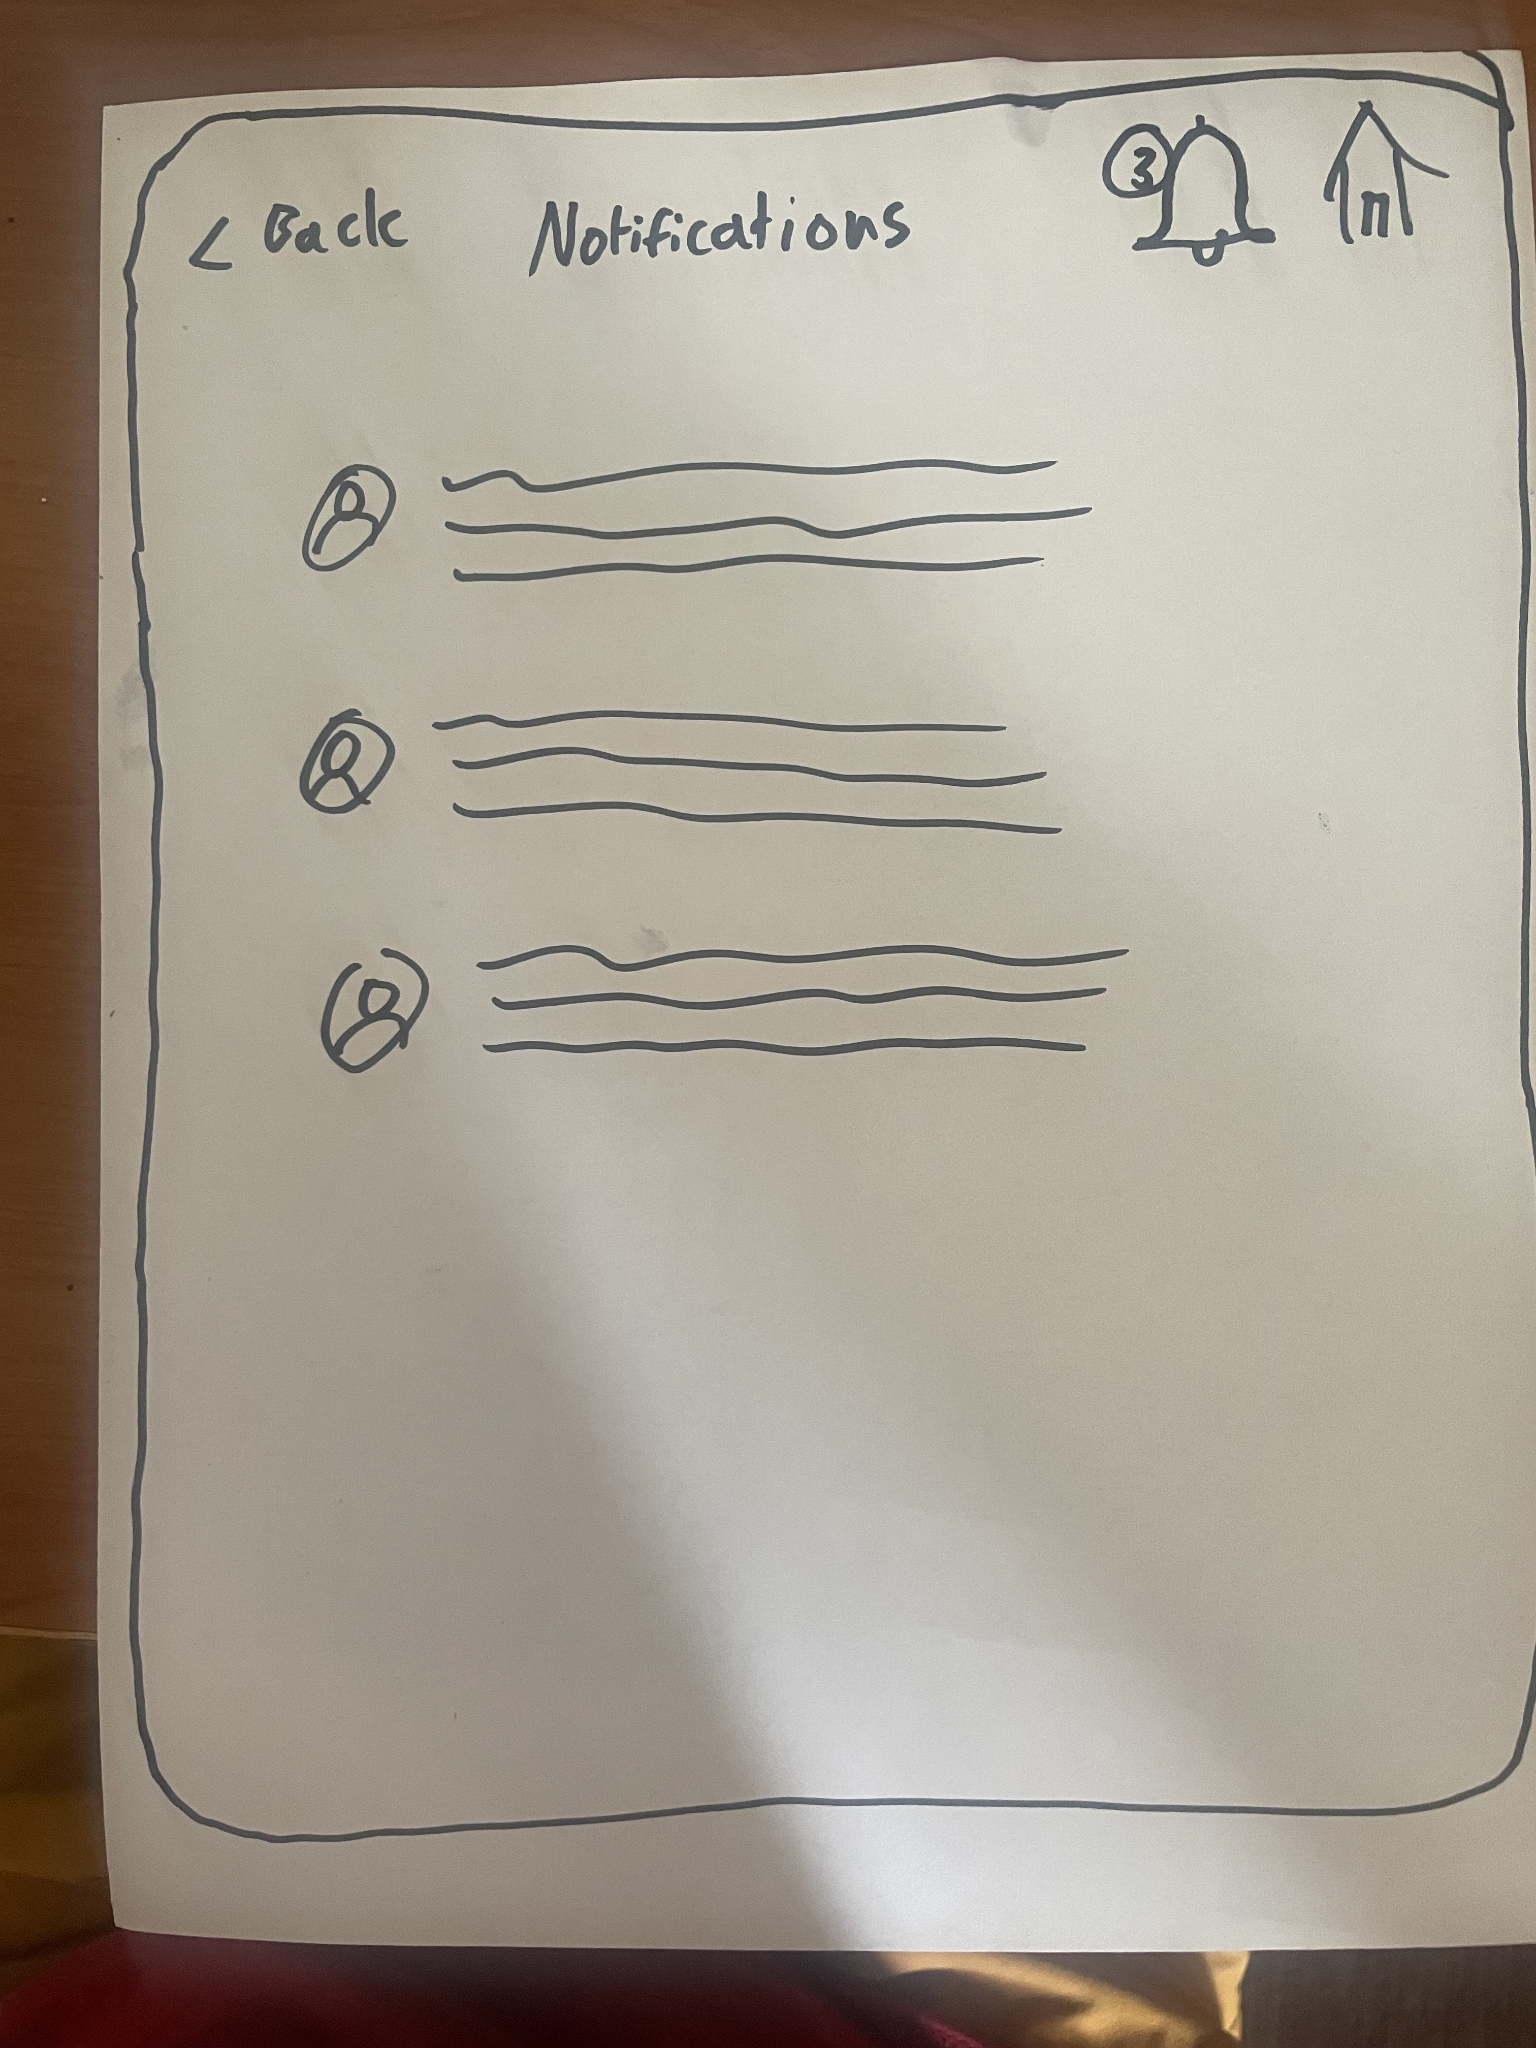 < Back Notifications 3